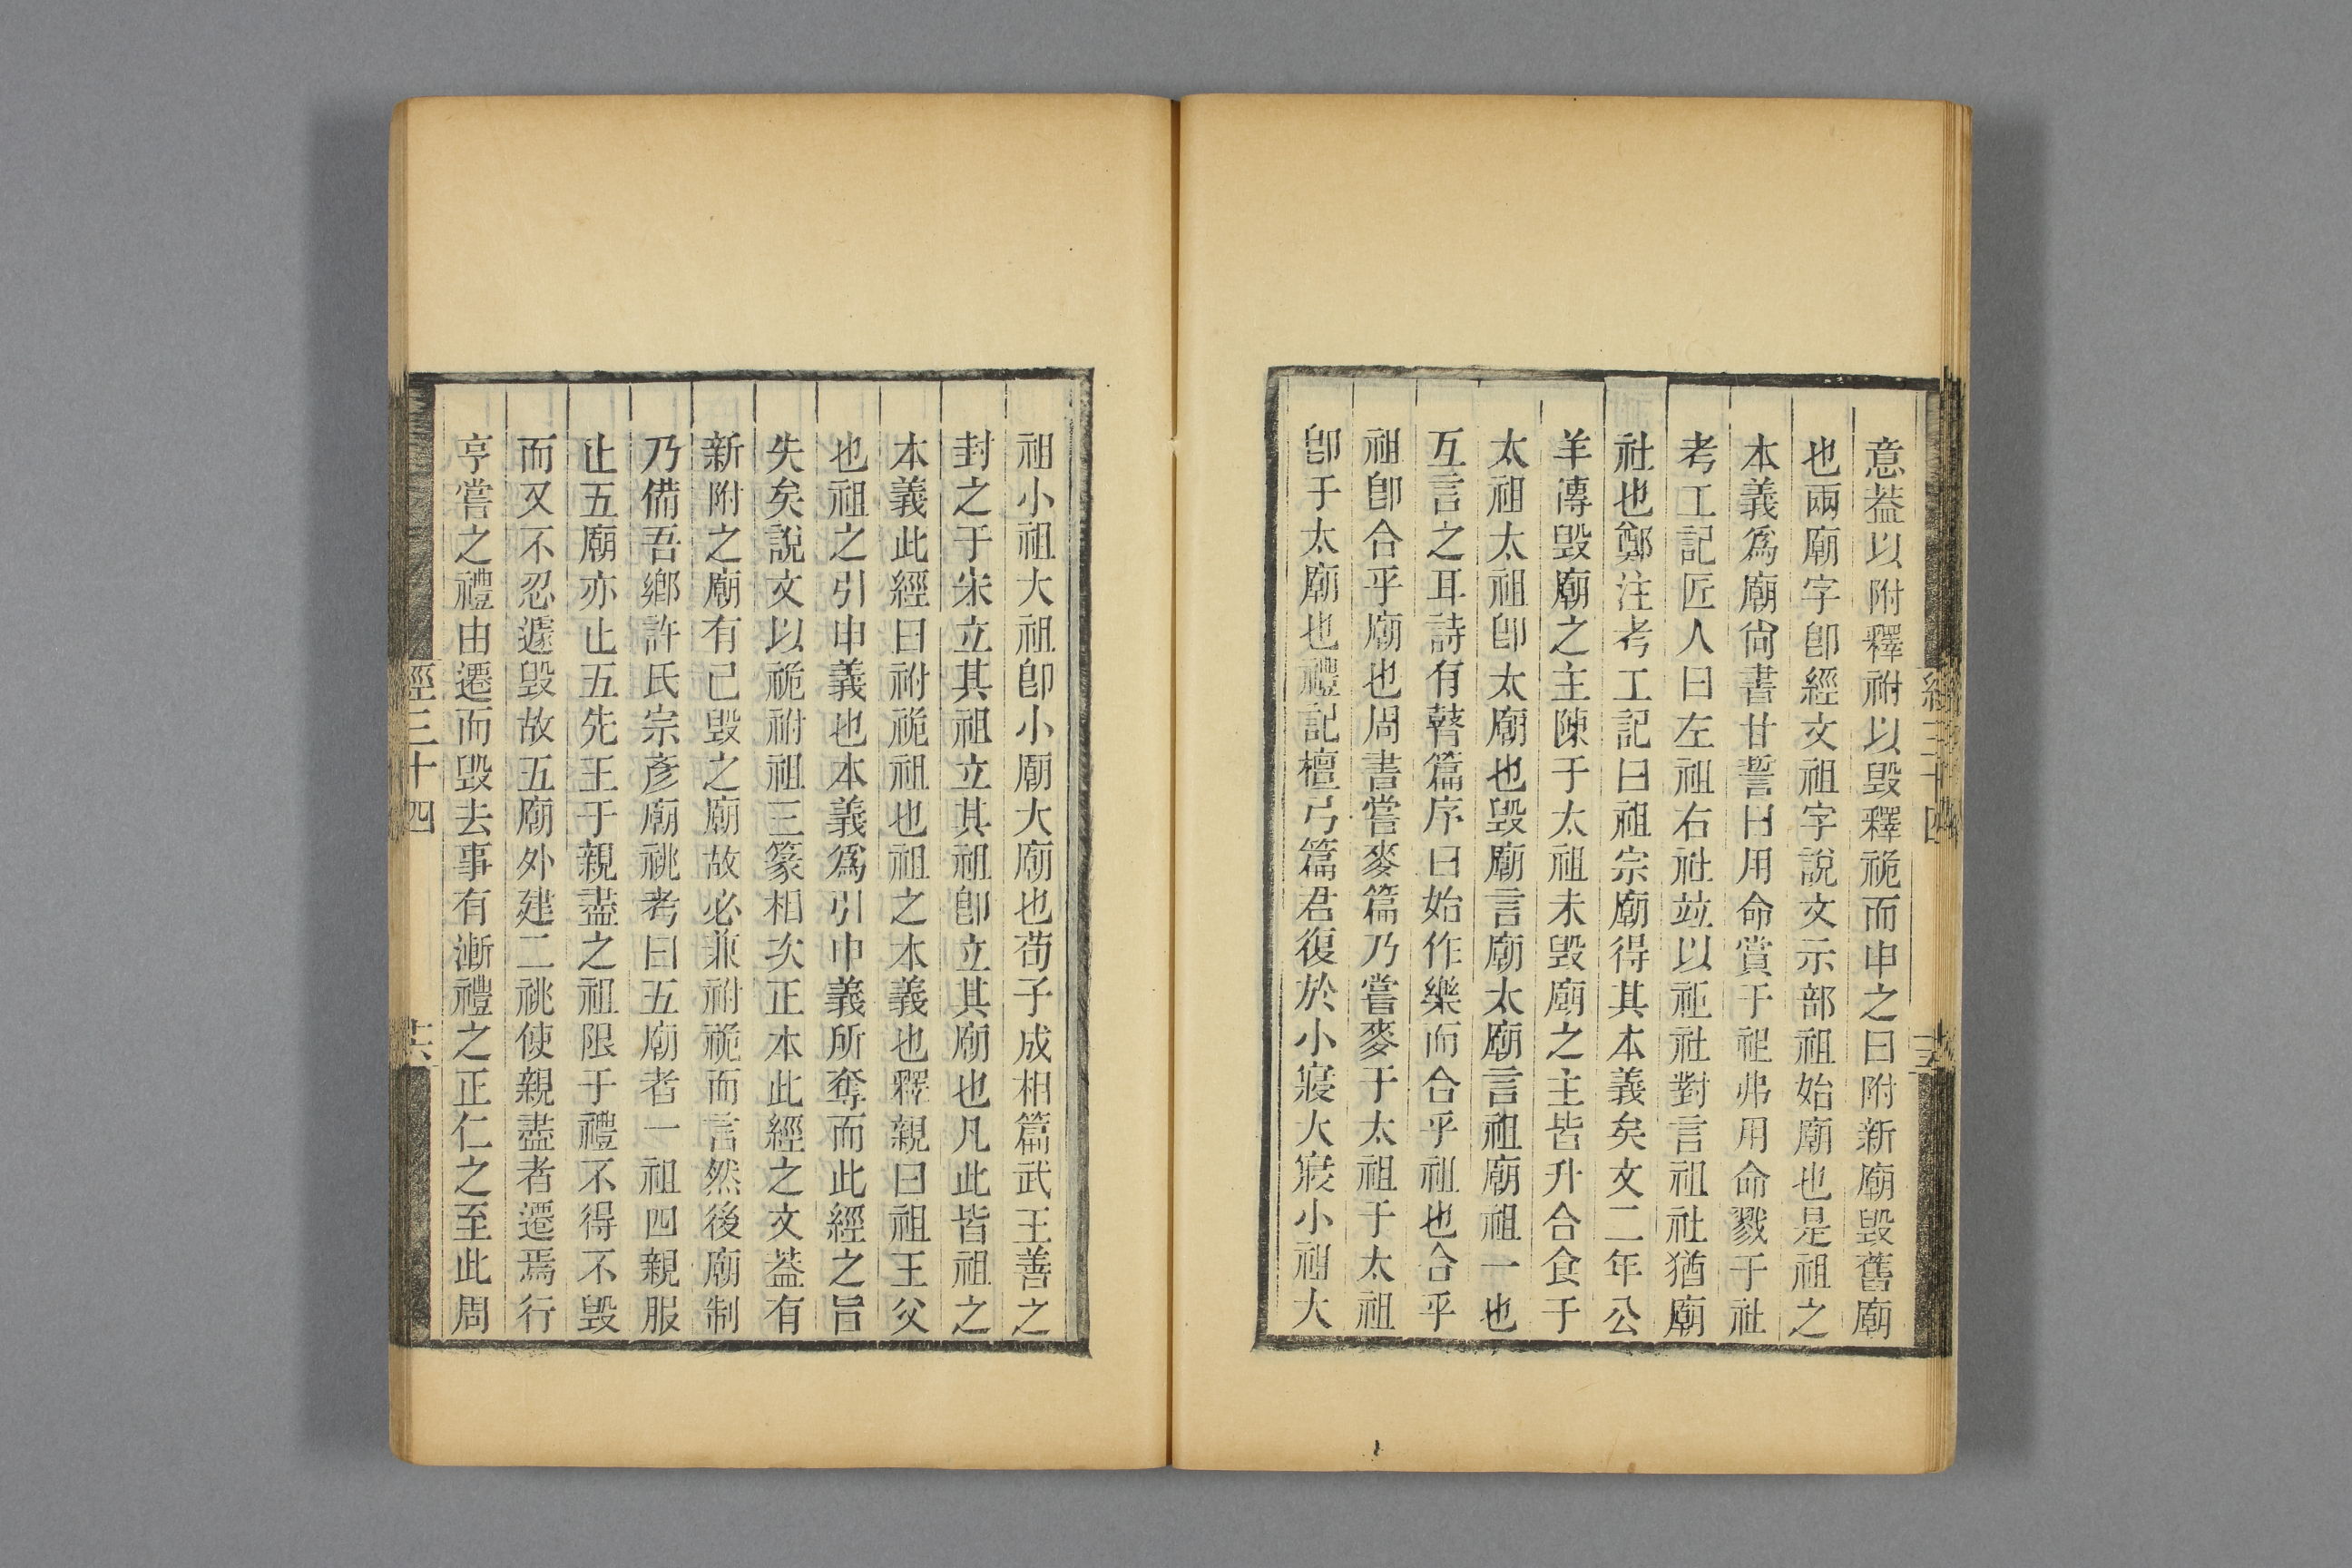 意葢以附釋祔以毀釋祪而申之曰附新廟毀舊廟
也兩廟字卽經文祖字說文示部祖始廟也是祖之
本義爲廟尙書甘誓曰用命賞于祖弗用命戮于社
考工記匠人曰左祖右社竝以祖社對言祖社猶廟
社也鄭注考工記曰祖宗廟得其本義矣文二年公
羊傳毀廟之主陳于太祖未毀廟之主皆升合食于
太祖太祖卽太廟也毀廟言廟太廟言祖廟祖一也
互言之耳詩有瞽篇序曰始作樂而合乎祖也合乎
祖卽合乎廟也周書嘗麥篇乃嘗麥于太祖于太祖
卽于太廟也禮記檀弓篇君復於小寢大寢小祖大
經三十四
祖小祖大祖卽小廟大廟也荀子成相篇武王善之
封之于宋立其祖立其祖卽立其廟也凡此皆祖之
本義此經曰祔祪祖也祖之本義也釋親曰祖王父
也祖之引申義也本義爲引申義所奪而此經之旨
失矣說文以祪祔祖三篆相次正本此經之文葢有
新附之廟有已毀之廟故必兼祔祪而言然後廟制
乃備吾鄉許氏宗彥廟祧考曰五廟者一祖四親服
止五廟亦止五先王于親盡之祖限于禮不得不毀
而又不忍遽毀故五廟外建二祧使親盡者遷焉行
亨嘗之禮由遷而毀去事有漸禮之正仁之至此周
經三十四